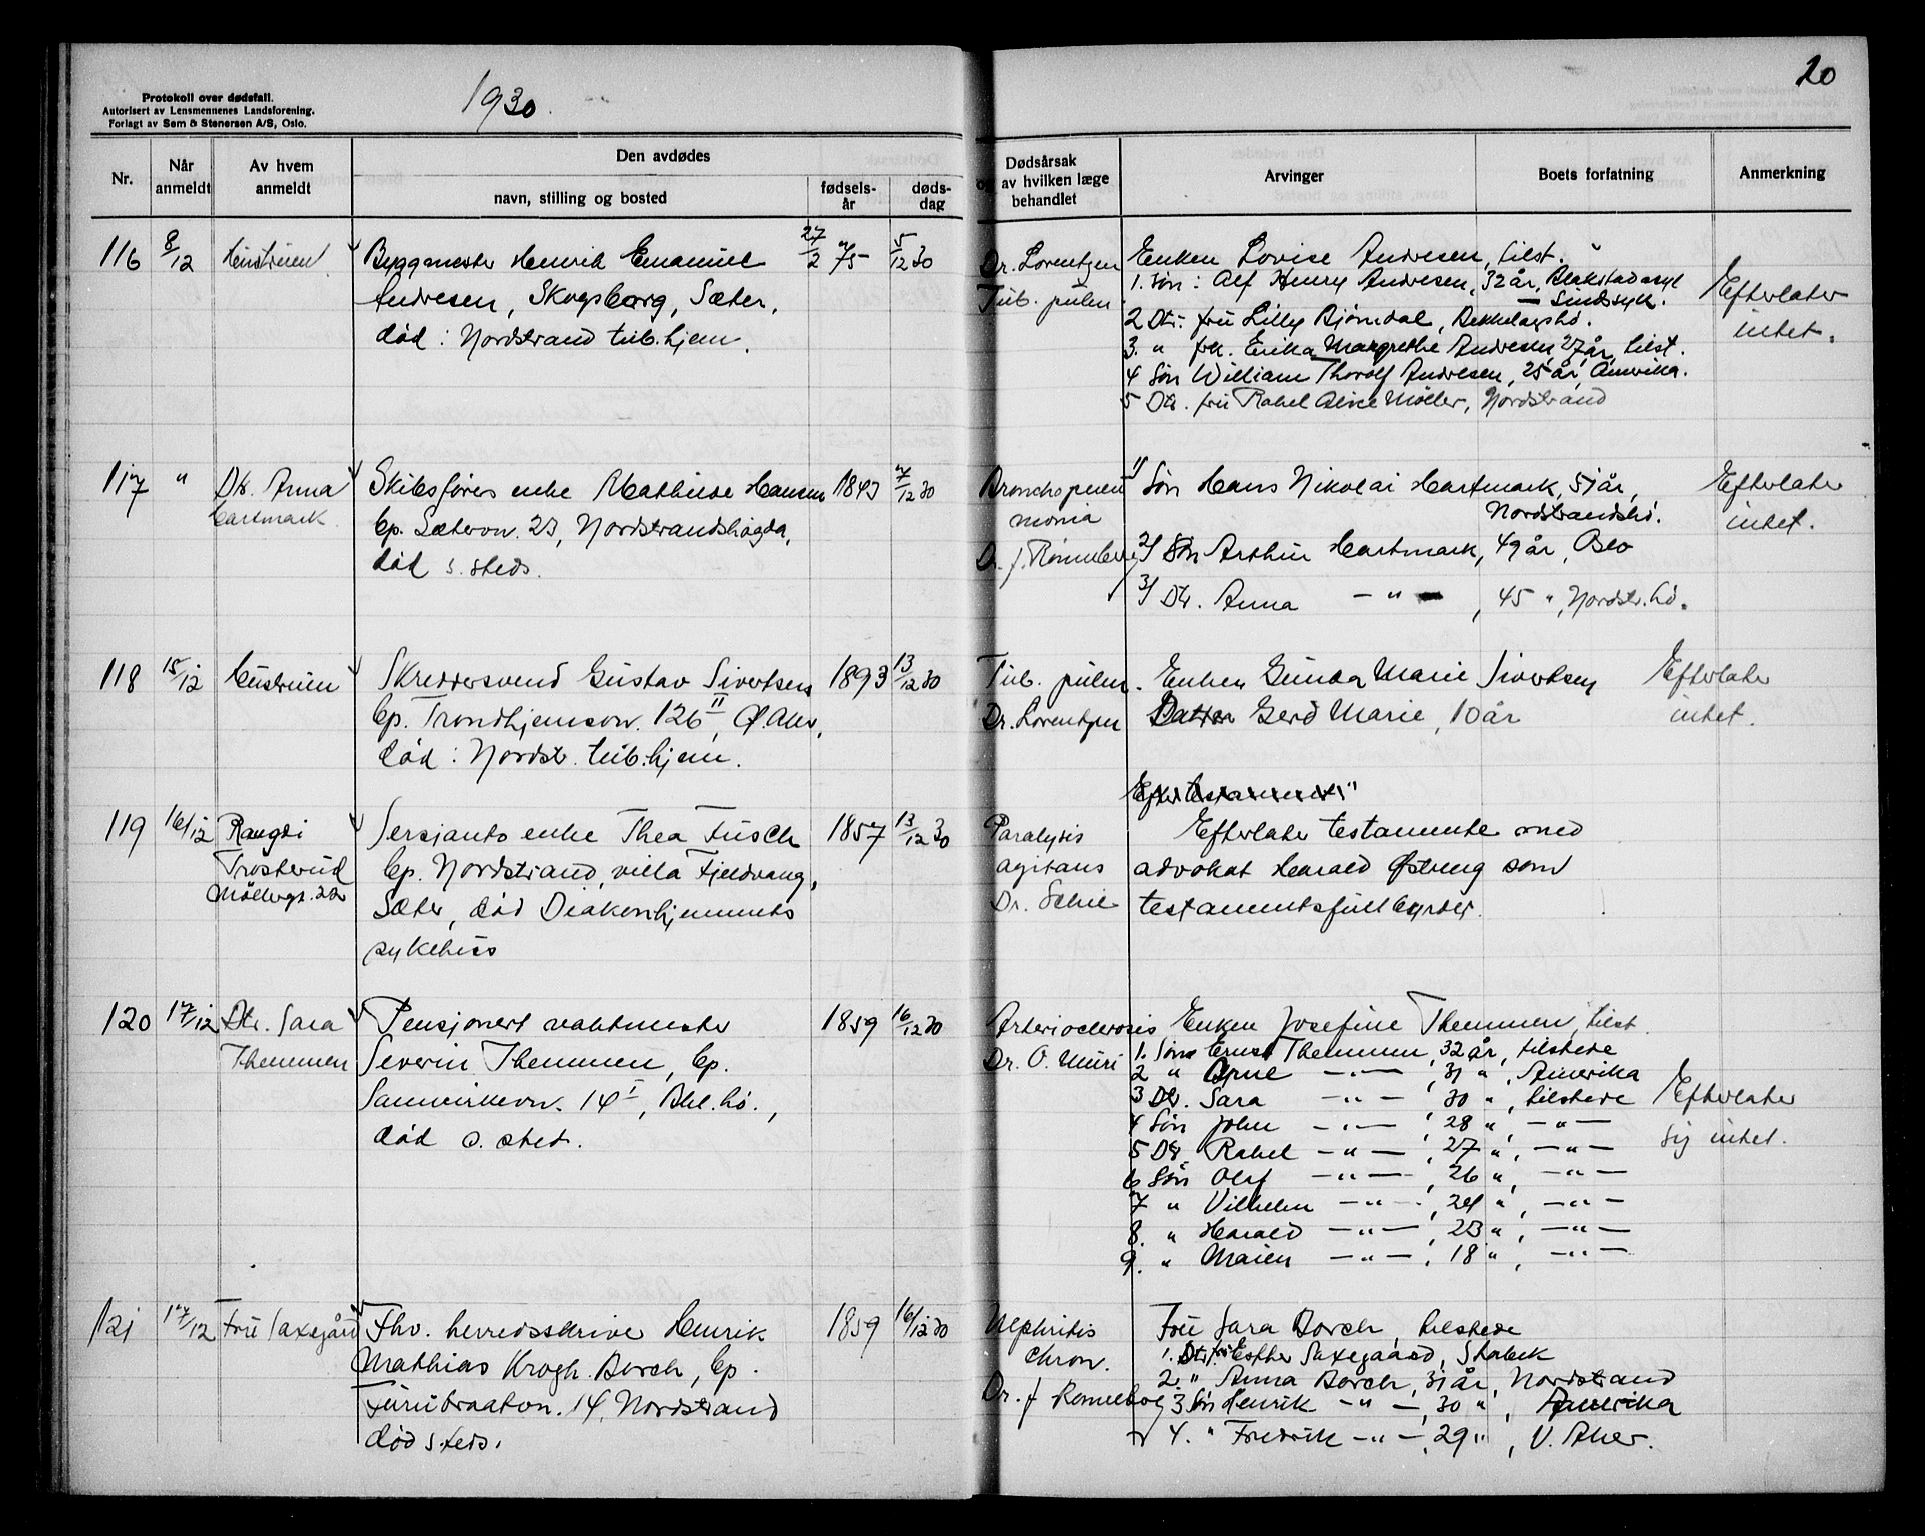 1930.
20
Protokoll over dødsfall.
Autorisert av Lensmennenes Landsforening.
Forlagt av Sem & Stenersen A/S, Oslo.
Nr.
Når anmeldt
Av hvem anmeldt
Den avdødes
navn, stilling og bosted
fødsels-år
døds-dag
Dødsårsak
av hvilken læge
behandlet
Arvinger
Boets forfatning
Anmerkning
116 8/12 Hustruen Byggmester Henrik Emanuel 27/2 75 5/12 30
Andresen, Skogsborg, Sæter,
død: Nordstrand tub.hjem.
Dr. Lorentzen
Tub. pulm
Enken Lovise Andresen, tilst.
1. Søn: Alf Henry Andresen, 32 år, Blakstad asyl
— Sindssyk.
2 Dtr. fru Lilly Bjørndal, Bekkelagshø.
3. " frk. Erika Margrethe Andresen, 27 år, tilst.
4 Søn William Thorolf Andresen, 25 år, Amerika.
5 Dtr. fru Rakel Alice Møller, Nordstrand
Efterlater
intet.
117 " Dtr. Anna Hartmark Skibsførers enke Mathilde Hansen 1843 7/12 30
bp. Sætervn. 23, Nordstrandshøgda,
død s. steds.
Bronchopneu
monia
Dr. J. Rønneberg
1/ Søn Hans Nikolai Hartmark, 51 år,
Nordstrandshø.
2/ Søn Arthur Hartmark, 49 år, Oslo
3/ Dtr. Anna — " — , 45 ", Nordstr.hø.
Efterlater
intet.
118 15/12 Hustruen Skreddersvend Gustav Sivertsen 1893 13/12 30
bp. Trondhjemsvn. 126 II, Ø. Aker,
død: Nordstr. tub.hjem.
Tub. pulm.
Dr. Lorentzen
Enken Gunda Marie Sivertsen
Datter Gerd Marie, 10 år
Efterlater
intet.
119 16/12 Rangdi Trosterud Møllergt. Sersjants enke Thea Fusch 1857 13/12 30
bp. Nordstrand, villa Fjeldvang,
Sæter, død Diakonhjemmets
sykehus
Paralysis
agitans
Dr. Schie
Efterlater testamente med
advokat Harald Østreng som
testamentsfuldbyrder.
120 17/12 Dtr. Sara Themmen Pensjonert vaktmester 1859 16/12 30
Severin Themmen, bp.
Samvirkevn. 14 I, Bkl.hø.,
død s. sted.
Arteriosclerosis
Dr. O. Muri
Enken Josefine Themmen, tilst.
1. Søn Ernst Themmen, 32 år, tilstede
2 " Arne — " — , 31 ", Amerika
3 Dtr. Sara — " — , 30 ", tilstede
4 Søn John — " — , 28 ", — " —
5 Dtr Rakel — " — , 27 ", — " —
6 Søn Olaf — " — , 26 ", — " —
7 " Vilhelm — " — , 24 ", — " —
8. " Harald — " — , 23 ", — " —
9. " — " — , 18 ", — " —
Efterlater
sig intet.
121 17/12 Fru Saxegård Fhv. herredsskriver Henrik 1859 16/12 30
Mathias Krogh Borch, bp.
Furubraatvn. 14, Nordstrand
død s. steds.
Nephritis
chron.
Dr. J
Fru Sara Borch, tilstede
1. Dtr. fru Esther Saxegaard, Stabek
2. " Anna Borch, 31 år, Nordstrand
3 Søn Henrik — " — , 30 ", Amerika
4. " Fredrik — " — , 29 ", V. Aker.